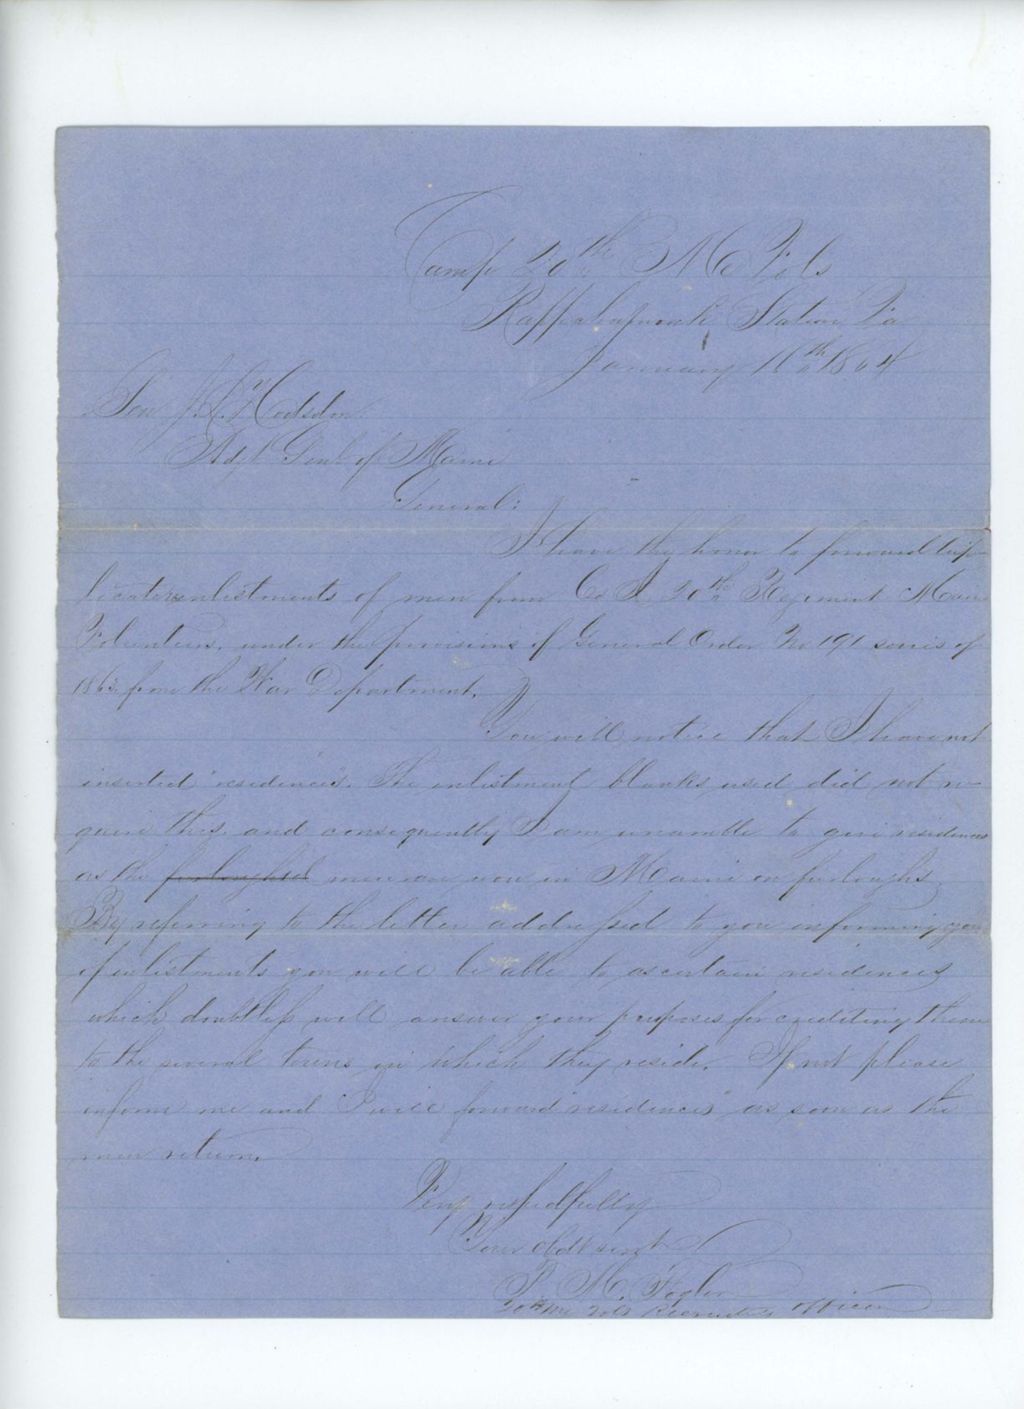 Camp 20th Me Vols
Rappahannock Station Va
January 16th 1864
Gen J. L. Hodsdon
Adjt Genl of Maine
General:
I have the honor to forward trip-
licate enlistments of men from Co I, 20th Regiment Maine
Volunteers, under the provisions of General Order No 191 series of
1863 from the War Department.
You will notice that I have not
inserted "residences". The enlistment blanks used did not re-
quire this, and consequently I am unamble to give residences
as the furloughed men are now in Maine on furloughs
By referring to the letter addressed to you informing you
of enlistments you will be able to ascertain residences
which doubtless will answer your purposes for crediting them
to the several towns in which they reside. If not please
inform me and I will forward "residences" as soon as the
men return.
Very respectfully
Your obdt servt
P. M. Fogler
20th Me Vols Recruiting Officer